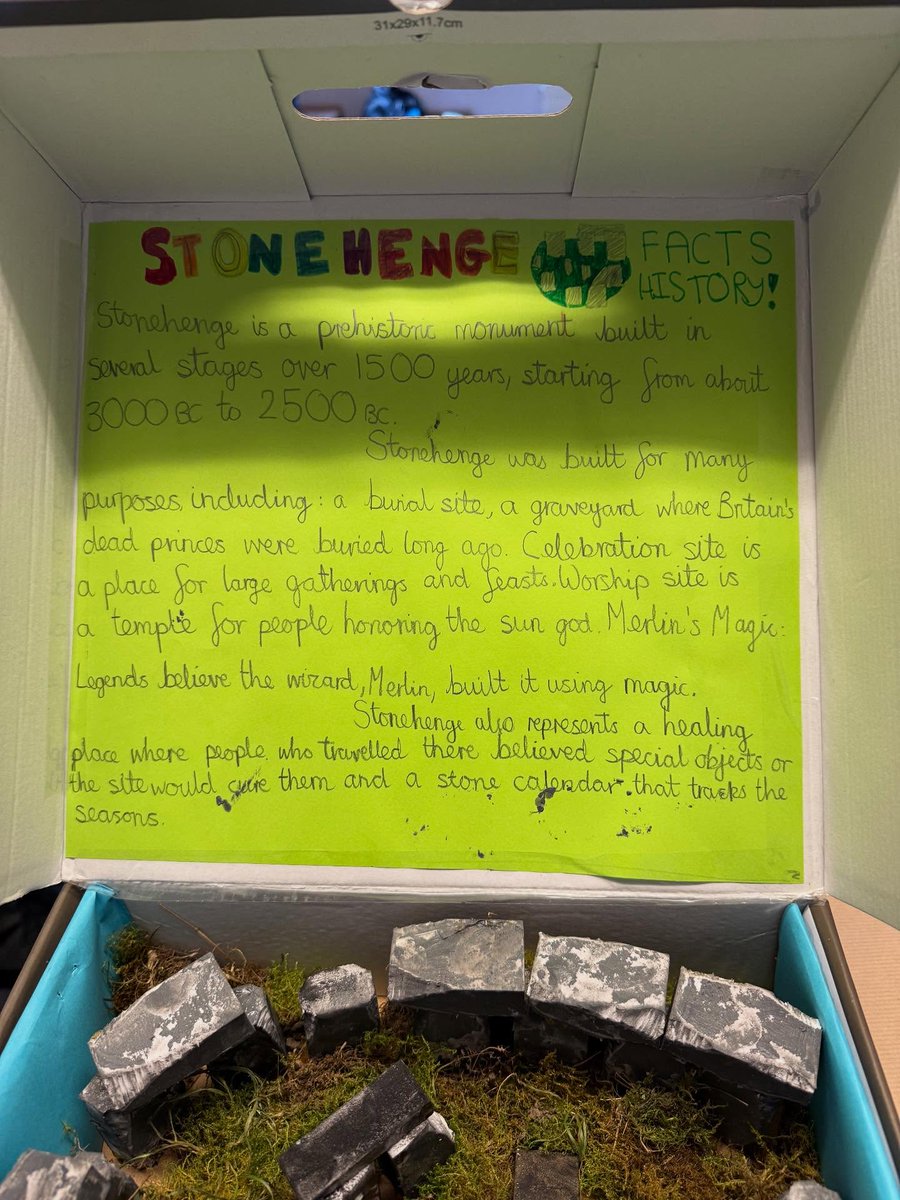 31x29x11.7cm
STONEHENGE FACTS
HISTORY!
Stonehenge is a prehistoric monument built in
several stages over 1500 years, starting from about
3000 BC to 2500 BC.
Stonehenge was built for many
purposes, including: a burial site, a graveyard where Britain's
dead princes were buried long ago. Celebration site is
a place for large gatherings and feasts. Worship site is
a temple for people honoring the sun god. Merlin's Magic:
Legends believe the wizard, Merlin, built it using magic.
Stonehenge also represents a healing
place where people who travelled there believed special objects or
the site would cure them and a stone calendar that tracks the
seasons.